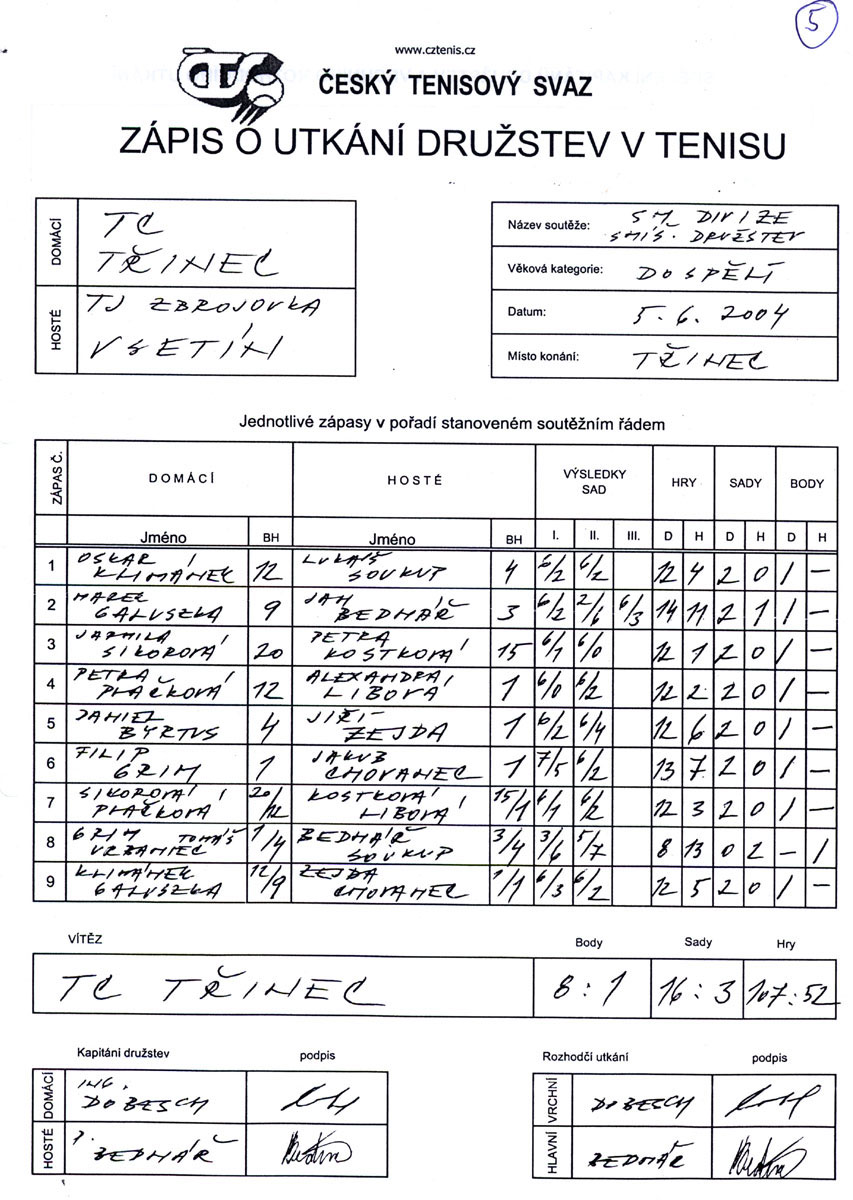 5
www.cztenis.cz
ČTS
ČESKÝ TENISOVÝ SVAZ
ZÁPIS O UTKÁNÍ DRUŽSTEV V TENISU
DOMÁCÍ TC TŘINEC
HOSTÉ TJ ZBROJOVKA VSETÍN
Název soutěže: SM. DIVIZE SMÍŠ. DRUŽSTEV
Věková kategorie: DOSPĚLÍ
Datum: 5. 6. 2004
Místo konání: TŘINEC
Jednotlivé zápasy v pořadí stanoveném soutěžním řádem
ZÁPAS Č. DOMÁCÍ HOSTÉ VÝSLEDKY SAD HRY SADY BODY
Jméno BH Jméno BH I. II. III. D H D H D H
1 OSKAR KLIMÁNEK 12 LUKÁŠ SOUKUP 4 6/2 6/2 12 4 2 0 1 –
2 MAREK GALUSZKA 9 JAN BEDNÁŘ 3 6/2 2/6 6/3 14 11 2 1 1 –
3 JARMILA SIKOROVÁ 20 PETRA KOSTKOVÁ 15 6/1 6/0 12 1 2 0 1 –
4 PETRA PLAČKOVÁ 12 ALEXANDRA LIBOVÁ 1 6/0 6/2 12 2 2 0 1 –
5 DANIEL BYRTUS 4 JIŘÍ ZEJDA 1 6/2 6/4 12 6 2 0 1 –
6 FILIP GRIM 1 JAKUB CHOVANEC 1 7/5 6/2 13 7 2 0 1 –
7 SIKOROVÁ PLAČKOVÁ 20/12 KOSTKOVÁ LIBOVÁ 15/1 6/1 6/2 12 3 2 0 1 –
8 GRIM TOMÁŠ VRZANIEC 1/4 BEDNÁŘ SOUKUP 3/4 3/6 5/7 8 13 0 2 – 1
9 KLIMÁNEK GALUSZKA 12/9 ZEJDA CHOVANEC 1/1 6/3 6/2 12 5 2 0 1 –
VÍTĚZ Body Sady Hry
TC TŘINEC 8:1 16:3 107:52
Kapitáni družstev podpis Rozhodčí utkání podpis
DOMÁCÍ ING. DOBESCH VRCHNÍ DOBESCH
HOSTÉ BEDNÁŘ HLAVNÍ BEDNÁŘ